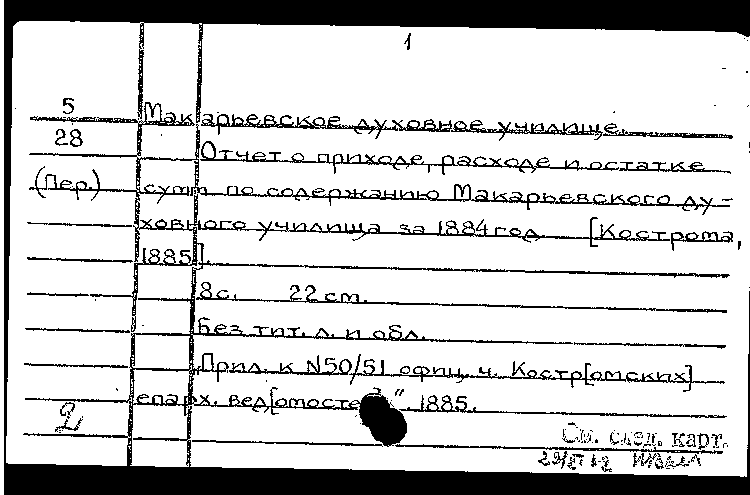 1
5 Макарьевское духовное училище.
28 Отчет о приходе, расходе и остатке
(Пер.) сумм по содержанию Макарьевского ду-
ховного училища за 1884 год [Кострома,
1885].
8с. 22 см.
Без тит. л. и обл.
Прил. к N50/51 офиц. ч. Костр[омских]
епарх. вед[омостей]". 1885.
2
См. след. карт.